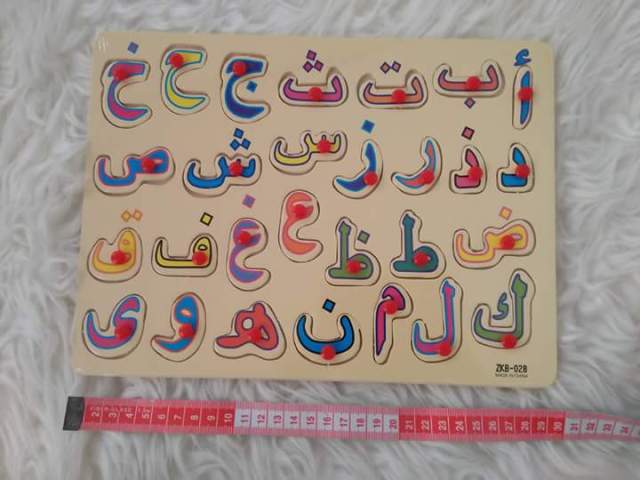 أ ب ت ث ج ح خ
د ذ ر ز س ش ص
ض ط ظ ع غ ف ق
ك ل م ن ه و ى
ZKB-028
MADE IN CHINA
2 3 4 5 6 7 8 9 10 11 12 13 14 15 16 17 18 19 20 21 22 23 24 25 26 27 28 29 30 31 32 33 34